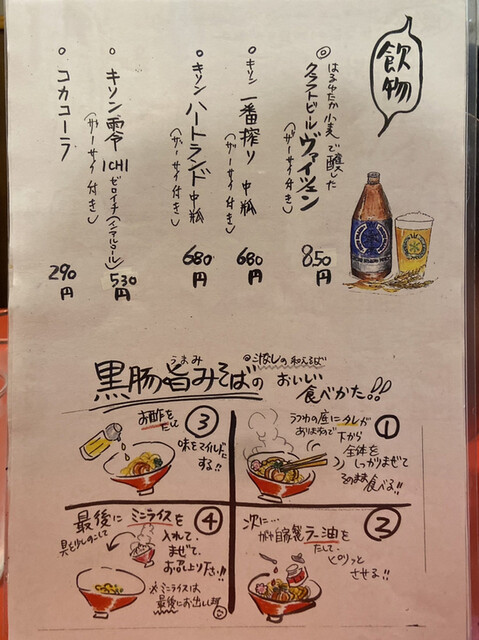 飲物
◎ はるゆたか小麦で醸した
クラフトビール ヴァイツェン
(ザーサイ付き)
850円
○ キリン 一番搾り 中瓶
(ザーサイ付き)
680円
○ キリン ハートランド 中瓶
(ザーサイ付き)
680円
○ キリン 零ICHI ゼロイチ(ノンアルコール)
(ザーサイ付き)
530円
○ コカコーラ
290円
◎汁なしの和えそば
うまみ
黒腸旨みそばの おいしい食べかた!!
①
うつわの底にタレが
ありますので下から
全体を
しっかりまぜて
そのまま
食べる!!
②
次に…
自家製ラー油を
たして、
ピリっと
させる!!
③
お酢を
たして
味をマイルドに
する!!
④
最後にミニライスを
具を少しのこして
入れて、
まぜて、
お召し上り下さい!!
※ミニライスは
最後にお出しします